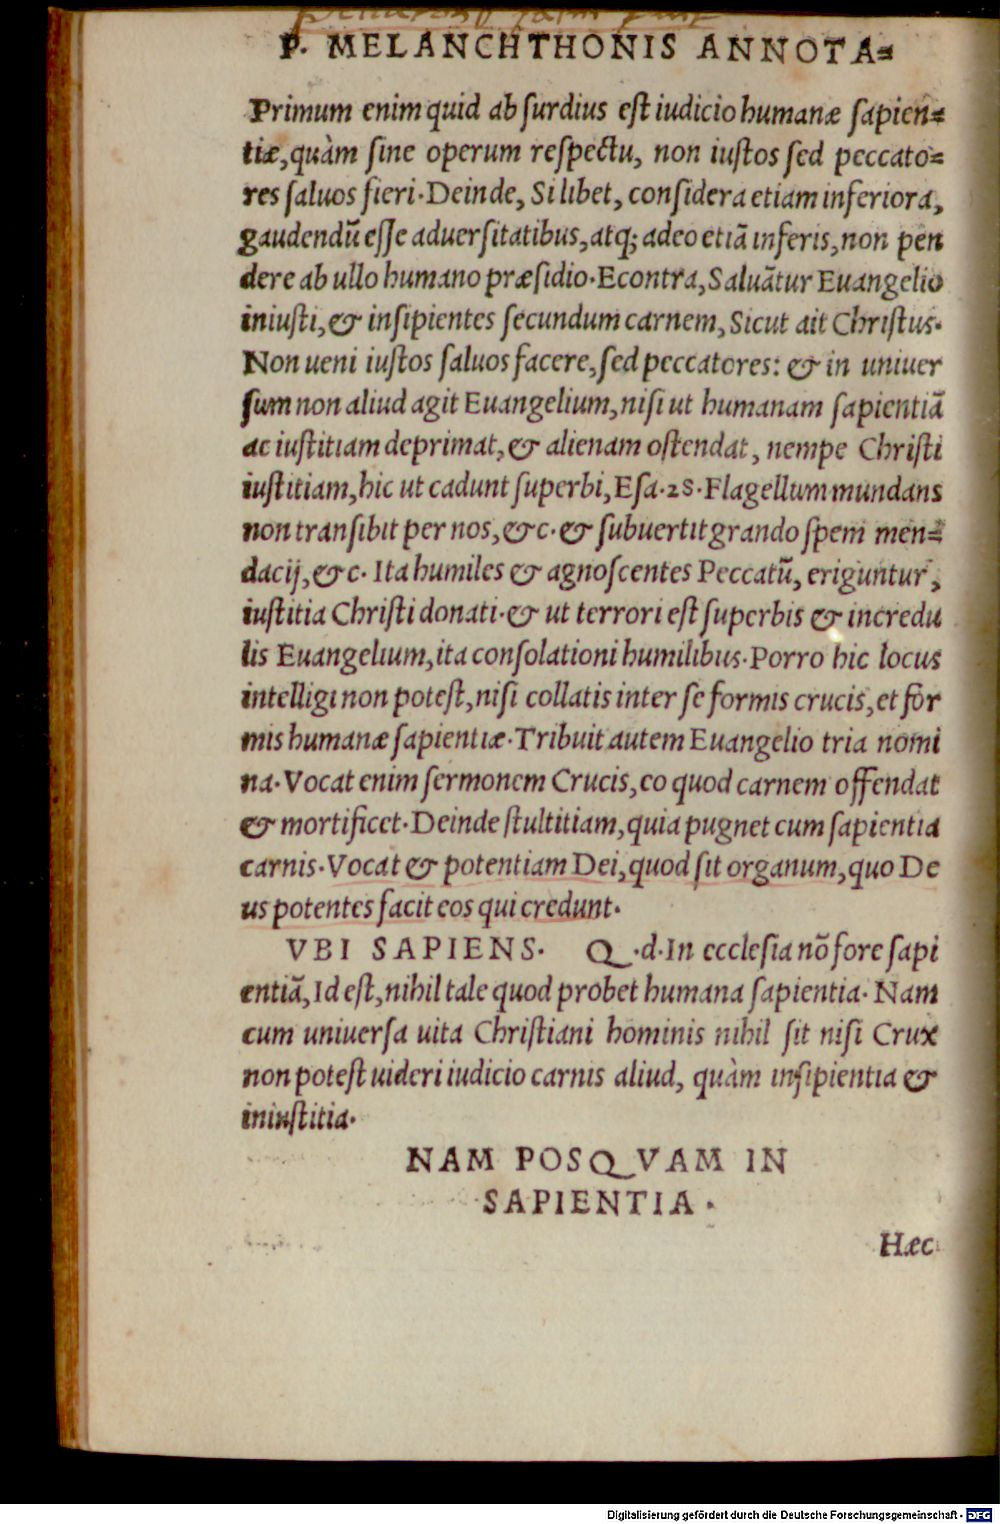 P. MELANCHTHONIS ANNOTA=
Primum enim quid absurdius est iudicio humanæ sapien=
tiæ, quàm sine operum respectu, non iustos sed peccato=
res saluos fieri. Deinde, Si libet, considera etiam inferiora,
gaudendũ esse aduersitatibus, atq; adeo etiã inferis, non pen
dere ab ullo humano præsidio. Econtra, Saluãtur Euangelio
iniusti, & insipientes secundum carnem, Sicut ait Christus.
Non ueni iustos saluos facere, sed peccatores: & in uniuer
sum non aliud agit Euangelium, nisi ut humanam sapientiã
ac iustitiam deprimat, & alienam ostendat, nempe Christi
iustitiam, hic ut cadunt superbi, Esa. 28. Flagellum mundans
non transibit per nos, &c. & subuertit grando spem men=
dacij, &c. Ita humiles & agnoscentes Peccatũ, eriguntur,
iustitia Christi donati. & ut terrori est superbis & incredu
lis Euangelium, ita consolationi humilibus. Porro hic locus
intelligi non potest, nisi collatis inter se formis crucis, et for
mis humanæ sapientiæ. Tribuit autem Euangelio tria nomi
na. Vocat enim sermonem Crucis, eo quod carnem offendat
& mortificet. Deinde stultitiam, quia pugnet cum sapientia
carnis. Vocat & potentiam Dei, quod sit organum, quo De
us potentes facit eos qui credunt.
VBI SAPIENS. Q.d. In ecclesia nõ fore sapi
entiã, Id est, nihil tale quod probet humana sapientia. Nam
cum uniuersa uita Christiani hominis nihil sit nisi Crux
non potest uideri iudicio carnis aliud, quàm insipientia &
iniustitia.
NAM POSQVAM IN
SAPIENTIA.
Hæc
Digitalisierung gefördert durch die Deutsche Forschungsgemeinschaft - DFG